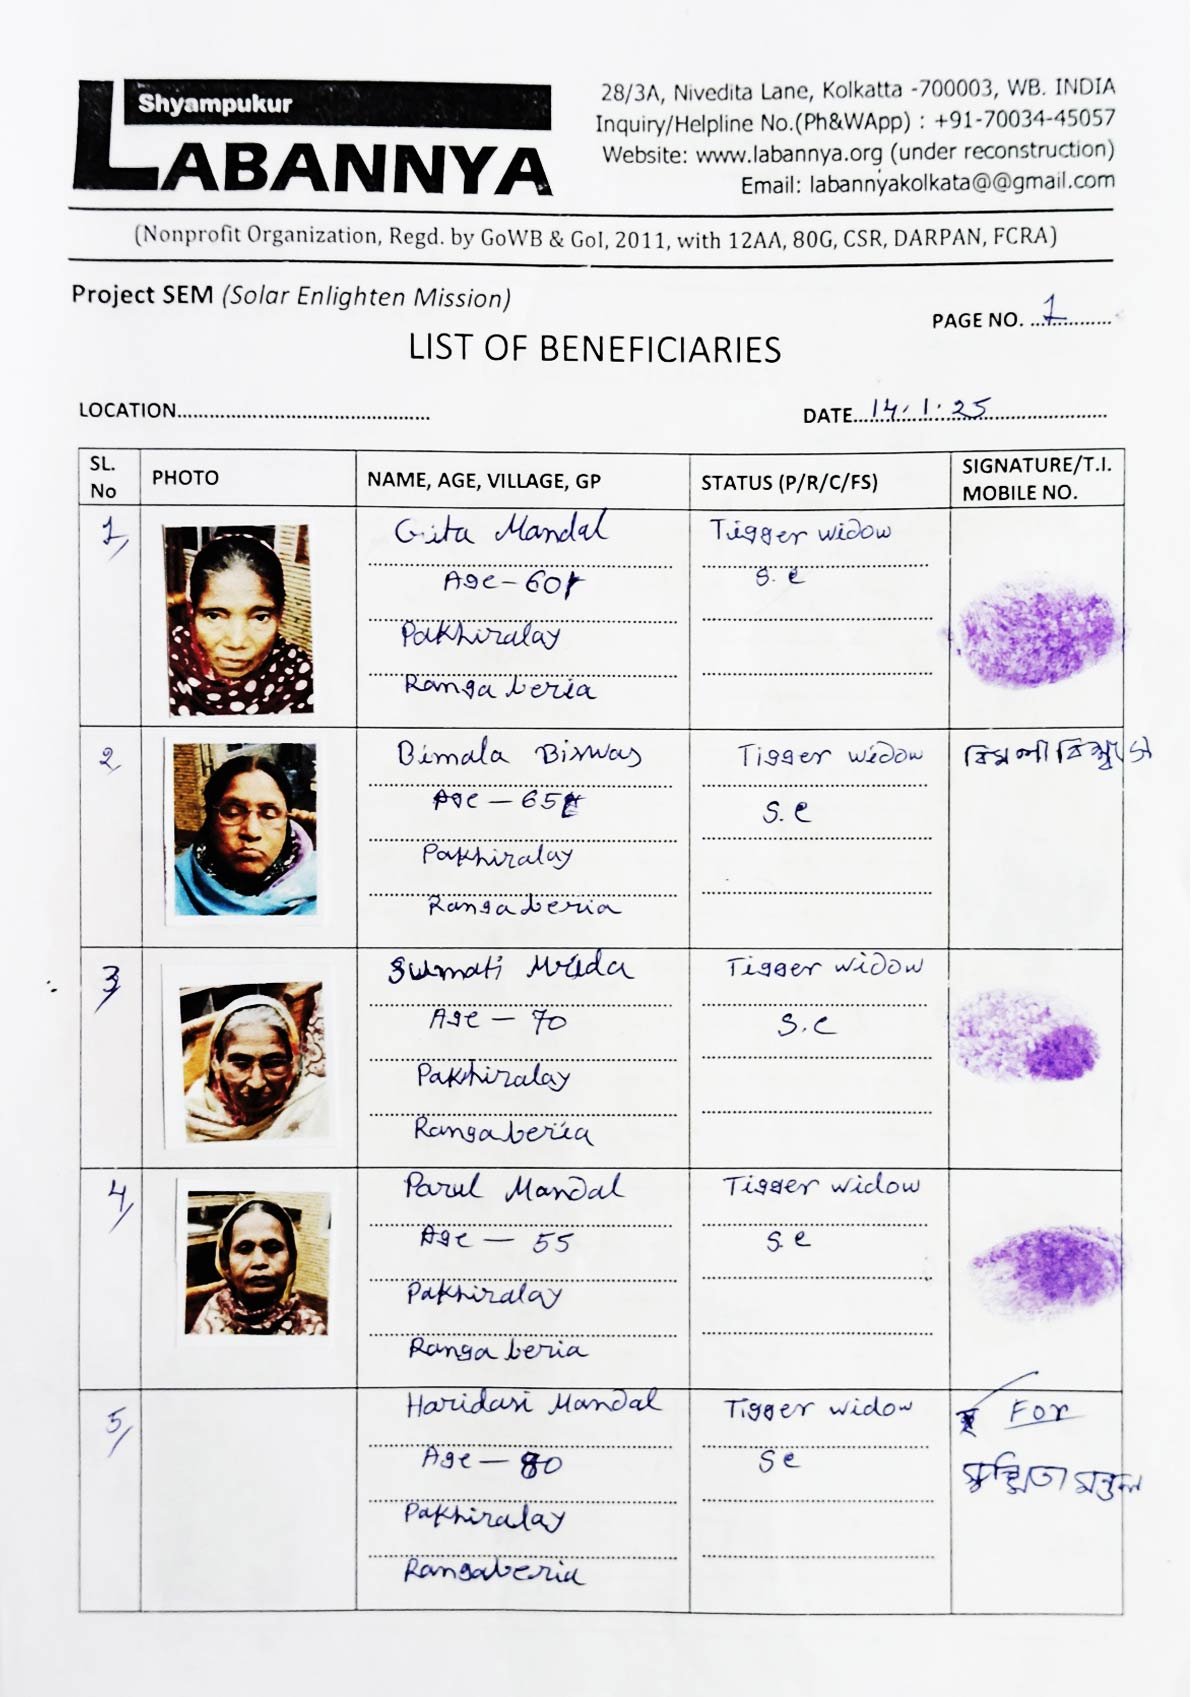 Shyampukur
LABANNYA
28/3A, Nivedita Lane, Kolkatta -700003, WB. INDIA
Inquiry/Helpline No.(Ph&WApp) : +91-70034-45057
Website: www.labannya.org (under reconstruction)
Email: labannyakolkata@@gmail.com
(Nonprofit Organization, Regd. by GoWB & GoI, 2011, with 12AA, 80G, CSR, DARPAN, FCRA)
Project SEM (Solar Enlighten Mission)
PAGE NO. 1
LIST OF BENEFICIARIES
LOCATION
DATE 14.1.25
SL. No PHOTO NAME, AGE, VILLAGE, GP STATUS (P/R/C/FS) SIGNATURE/T.I. MOBILE NO.
1 Gita Mandal Tigger widow
Age - 60 S. C
Pakhiralay
Rangaberia
2 Bimala Biswas Tigger widow বিমলা বিশ্বাস
Age - 65 S. C
Pakhiralay
Rangaberia
3 Sumati Mrida Tigger widow
Age - 70 S. C
Pakhiralay
Rangaberia
4 Parul Mandal Tigger widow
Age - 55 S. C
Pakhiralay
Rangaberia
5 Haridasi Mandal Tigger widow For
Age - 80 SC মন্ডল
Pakhiralay
Rangaberia